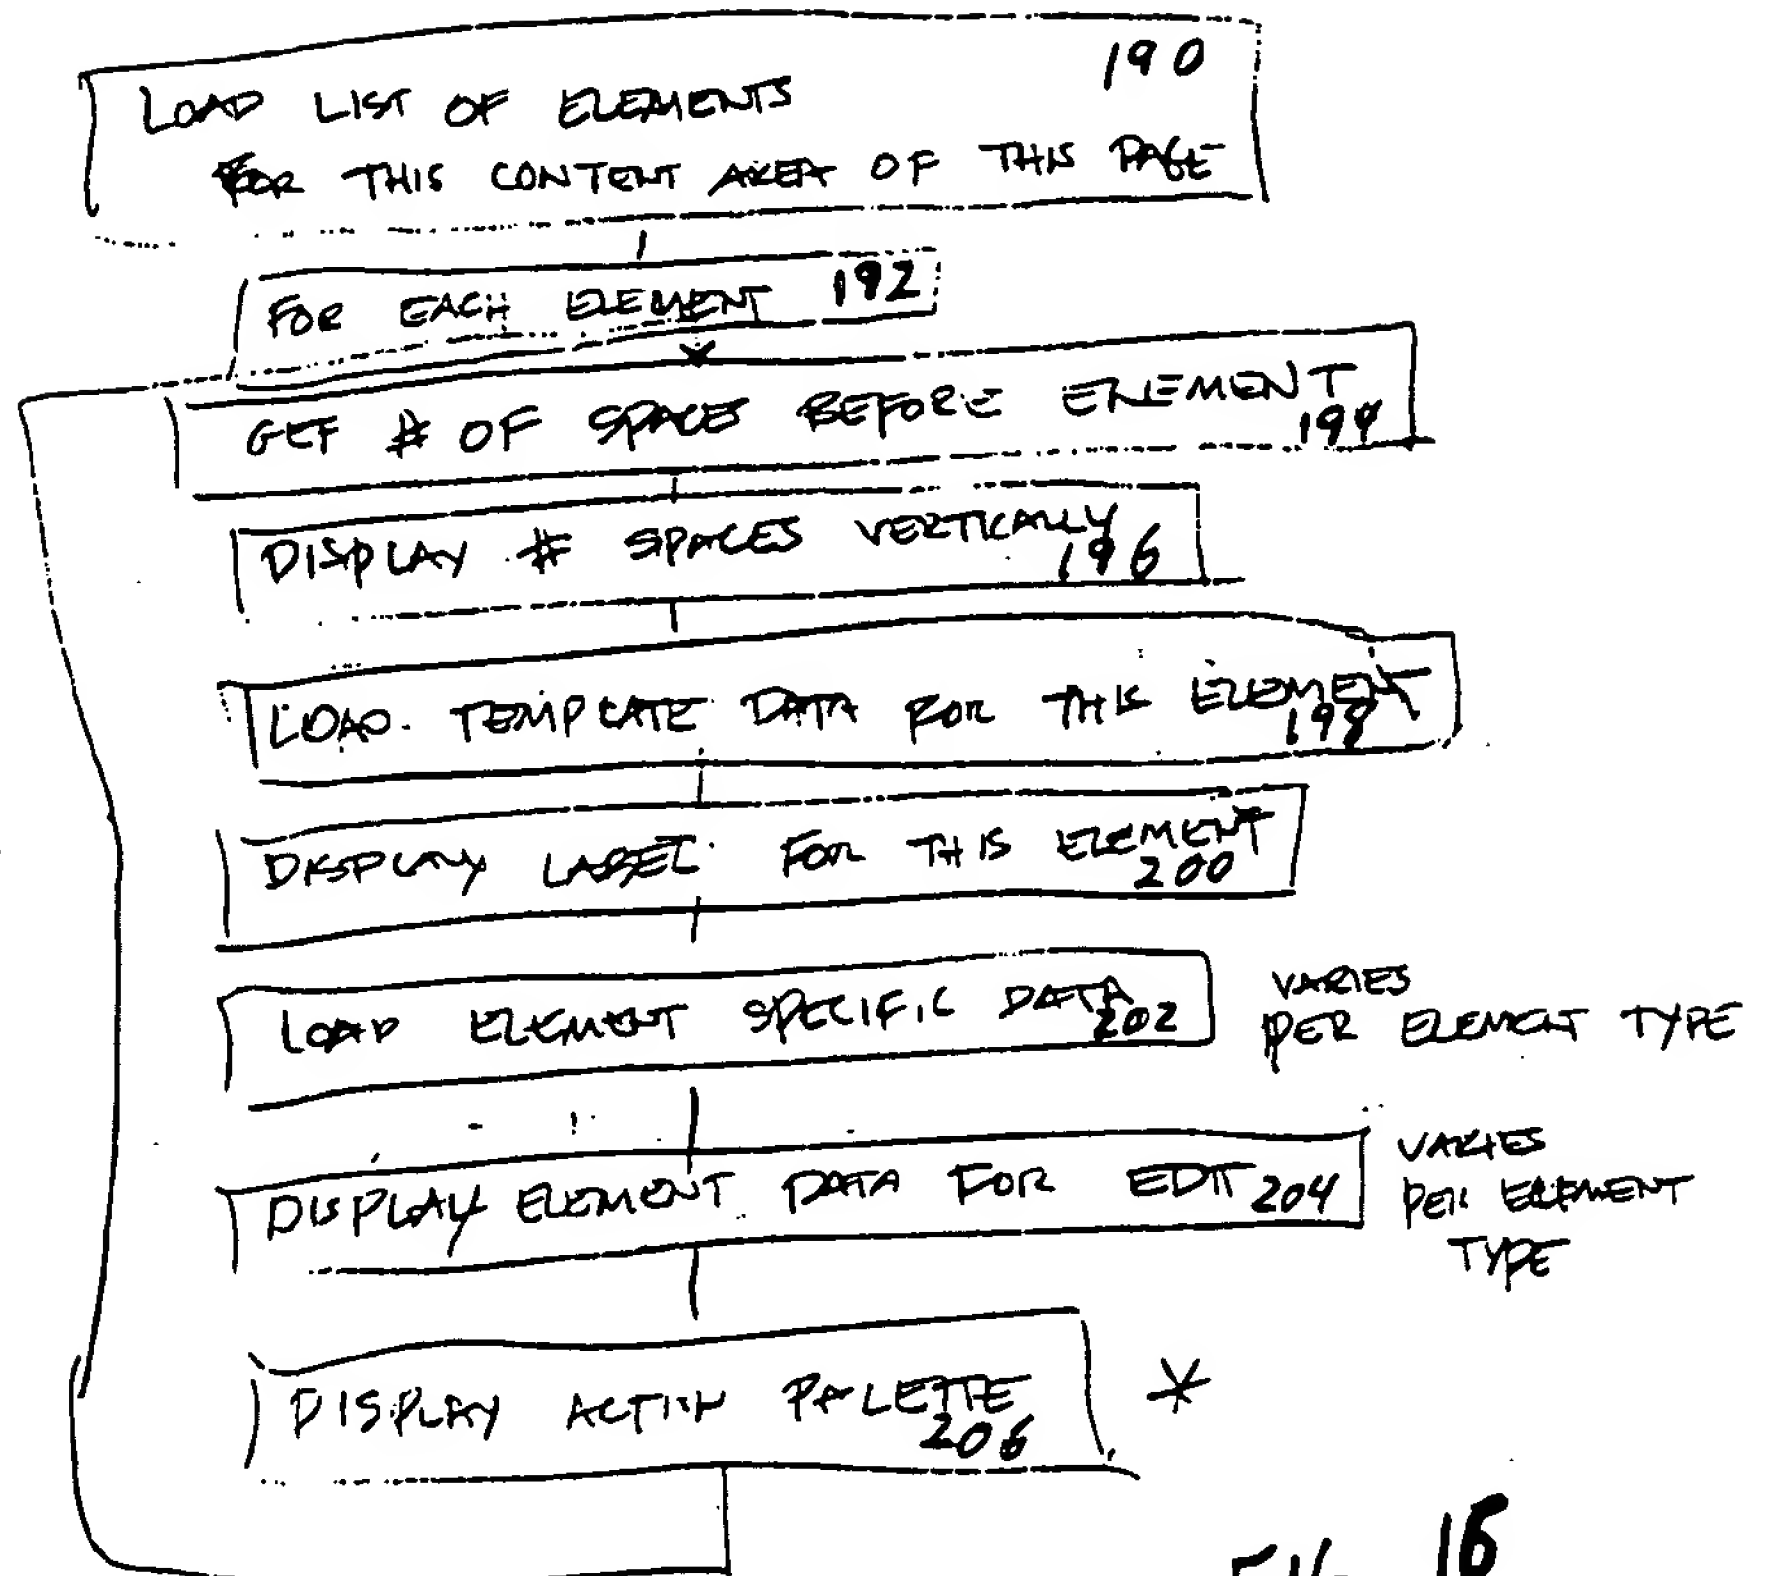 190
LOAD LIST OF ELEMENTS
FOR THIS CONTENT AREA OF THIS PAGE
FOR EACH ELEMENT 192
GET # OF SPACES BEFORE ELEMENT
194
DISPLAY # SPACES VERTICALLY
196
LOAD TEMPLATE DATA FOR THIS ELEMENT
198
DISPLAY LABEL FOR THIS ELEMENT
200
LOAD ELEMENT SPECIFIC DATA
202
VARIES
PER ELEMENT TYPE
DISPLAY ELEMENT DATA FOR EDIT 204
VARIES
PER ELEMENT
TYPE
DISPLAY ACTION PALETTE *
206
16